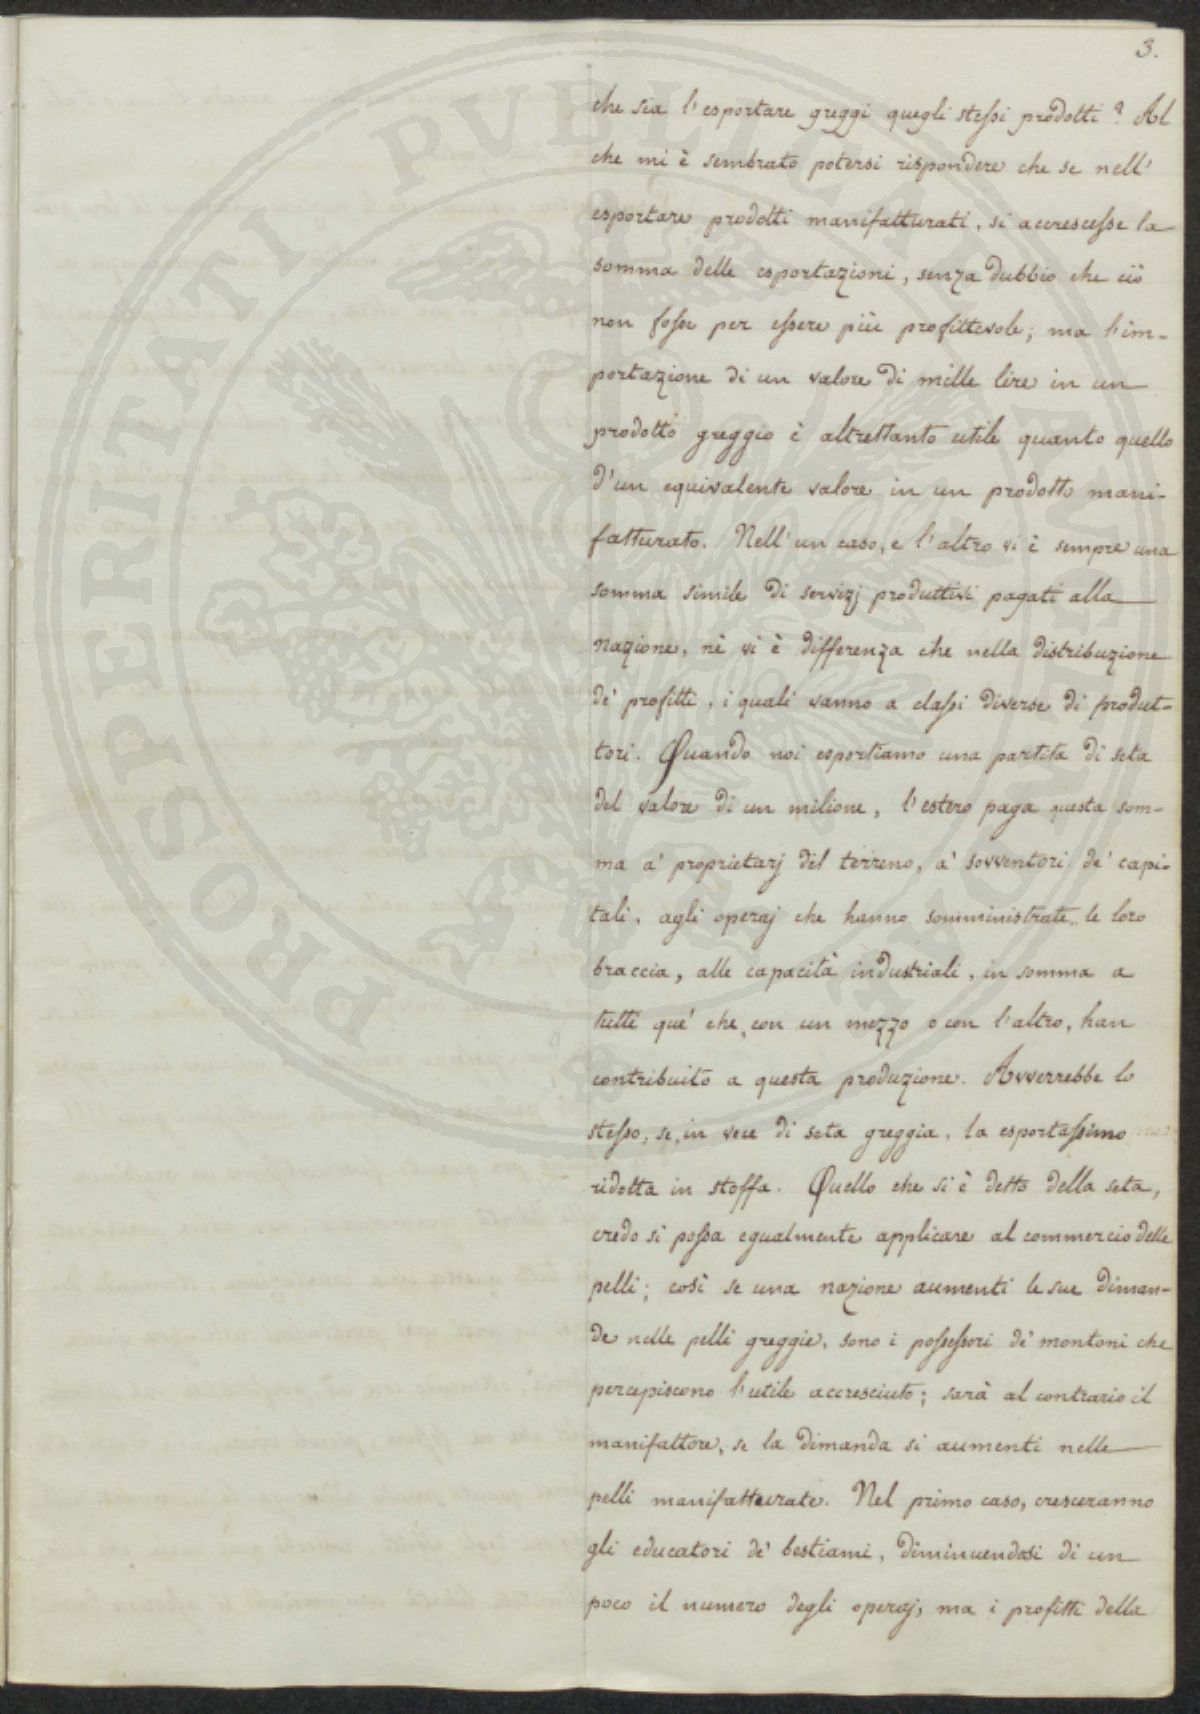 3.
che sia l'esportare greggi quegli stessi prodotti? Al
che mi è sembrato potersi rispondere che se nell'
esportare prodotti manifatturati, si accrescesse la
somma delle esportazioni, senza dubbio che ciò
non fosse per essere più profittevole; ma l'im-
portazione di un valore di mille lire in un
prodotto greggio è altrettanto utile quanto quello
d'un equivalente valore in un prodotto mani-
fatturato. Nell'un caso, e l'altro vi è sempre una
somma simile di servizj produttivi pagati alla
nazione, nè vi è differenza che nella distribuzione
de' profitti, i quali vanno a classi diverse di produt-
tori. Quando noi esportiamo una partita di seta
del valore di un milione, l'estero paga questa som-
ma a' proprietarj del terreno, a' sovventori de' capi-
tali, agli operaj che hanno somministrate le loro
braccia, alle capacità industriali, in somma a
tutti que' che, con un mezzo o con l'altro, han
contribuito a questa produzione. Avverrebbe lo
stesso, se, in vece di seta greggia, la esportassimo
ridotta in stoffa. Quello che si è detto della seta,
credo si possa egualmente applicare al commercio delle
pelli; così se una nazione aumenti le sue diman-
de nelle pelli greggie, sono i possessori de' montoni che
percepiscono l'utile accresciuto; sarà al contrario il
manifattore, se la dimanda si aumenti nelle
pelli manifatturate. Nel primo caso, cresceranno
gli educatori de' bestiami, diminuendosi di un
poco il numero degli operaj, ma i profitti della
PROSPERITATI PVBLICAE